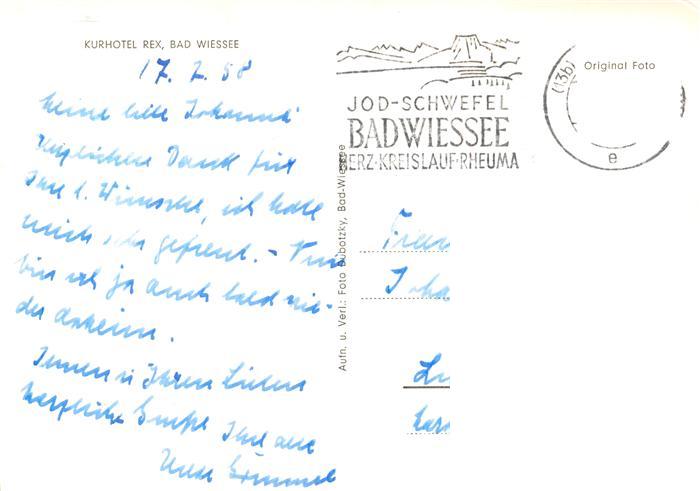 KURHOTEL REX, BAD WIESSEE
17. 2. 58
Meine liebe Johanna!
Herzlichen Dank für
Ihre l. Wünsche, ich habe
mich sehr gefreut. - Nun
bin ich ja auch bald wie-
der daheim.
Ihnen u Ihren Lieben
herzliche Grüße Ihre alte
Aufn. u. Verl.: Foto Dubotzky, Bad-Wiessee
JOD-SCHWEFEL
BAD WIESSEE
HERZ·KREISLAUF·RHEUMA
(13b)
e
Original Foto
Frau
Joha